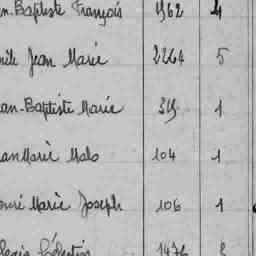 n. Baptiste François 1962 4
Jean Marie 2264 5
an-Baptiste Marie 319 1
an Marie Malo 104 1
Marie Joseph 106 1
1476